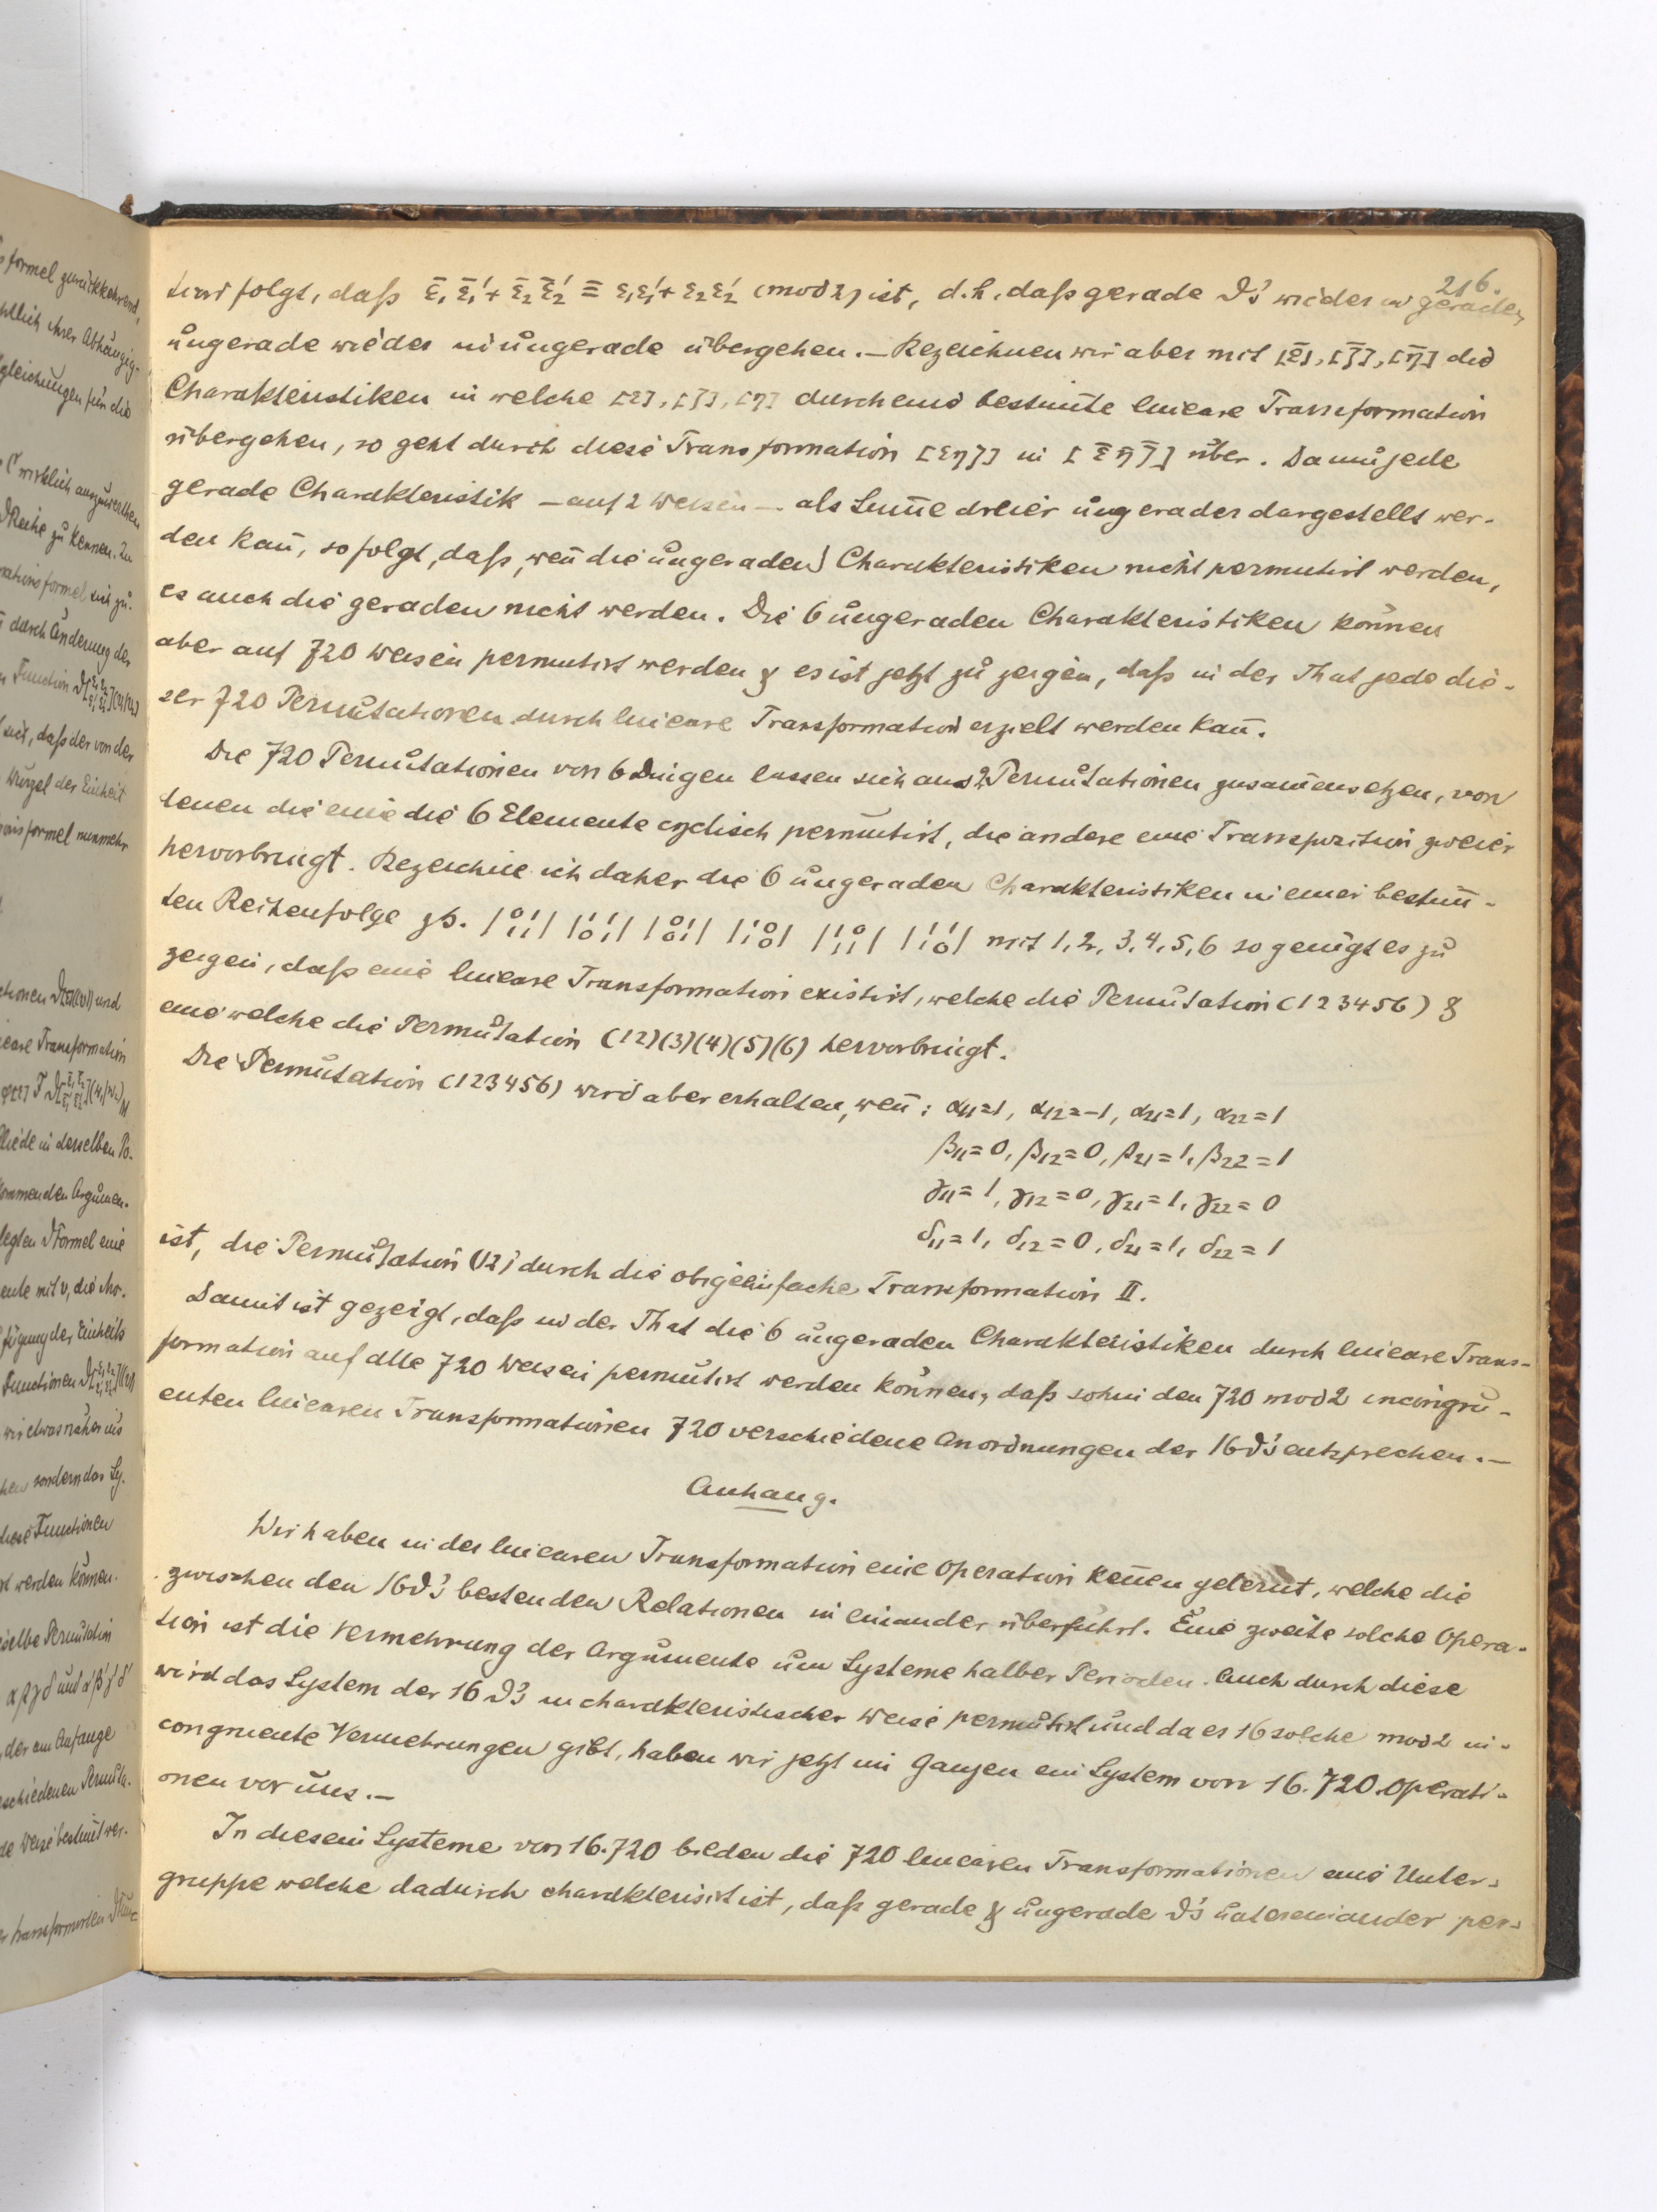 216.
folgt, daß ε̄₁ε̄₁' + ε̄₂ε̄₂' ≡ ε₁ε₁' + ε₂ε₂' (mod 2) ist, d.h. daß gerade ϑ's wieder in gerade,
ungerade wieder in ungerade übergehen. — Bezeichnen wir aber mit [ε̄], [ζ̄], [η̄] die
Charakteristiken in welche [ε], [ζ], [η] durch eine bestim̄te lineare Transformation
übergehen, so geht durch diese Transformation [εηζ] in [ε̄η̄ζ̄] über. Da nun jede
gerade Charakteristik — auf 2 Weisen — als Sum̄e dreier ungerader dargestellt wer-
den kan̄, so folgt, daß, wen̄ die ungeraden Charakteristiken nicht permutirt werden,
es auch die geraden nicht werden. Die 6 ungeraden Charakteristiken können
aber auf 720 Weisen permutirt werden & es ist jetzt zu zeigen, daß in der That jede die-
ser 720 Permutationen durch lineare Transformation erzielt werden kan̄.
Die 720 Permutationen von 6 Dingen lassen sich aus 2 Permutationen zusam̄ensetzen, von
denen die eine die 6 Elemente cyclisch permutirt, die andere eine Transposition zweier
hervorbringt. Bezeichne ich daher die 6 ungeraden Charakteristiken in einer bestim̄-
ten Reihenfolge zB. |⁰¹₁₁| |¹¹₀₁| |⁰¹₀₁| |¹⁰₁₀| |¹⁰₁₁| |¹¹₁₀| mit 1, 2, 3, 4, 5, 6 so genügt es zu
zeigen, daß eine lineare Transformation existirt, welche die Permutation (123456) &
eine welche die Permutation (12)(3)(4)(5)(6) hervorbringt.
Die Permutation (123456) wird aber erhalten, wen̄: α₁₁=1, α₁₂=-1, α₂₁=1, α₂₂=1
β₁₁=0, β₁₂=0, β₂₁=1, β₂₂=1
γ₁₁=1, γ₁₂=0, γ₂₁=1, γ₂₂=0
δ₁₁=1, δ₁₂=0, δ₂₁=1, δ₂₂=1
ist, die Permutation (12) durch die obige einfache Transformation II.
Damit ist gezeigt, daß in der That die 6 ungeraden Charakteristiken durch lineare Trans-
formation auf alle 720 Weisen permutirt werden können, daß sohin den 720 mod 2 incongru-
enten linearen Transformationen 720 verschiedene Anordnungen der 16 ϑ's entsprechen. —
Anhang.
Wir haben in der linearen Transformation eine Operation ken̄en gelernt, welche die
zwischen den 16 ϑ's bestenden Relationen in einander überführt. Eine zweite solche Opera-
tion ist die Vermehrung der Argumente um Systeme halber Perioden. Auch durch diese
wird das System der 16 ϑ's in charakteristischer Weise permutirt und da es 16 solche mod 2 in-
congruente Vermehrungen gibt, haben wir jetzt im Ganzen ein System von 16.720 Operati-
onen vor uns. —
In diesem Systeme von 16.720 bilden die 720 linearen Transformationen eine Unter-
gruppe welche dadurch charakterisirt ist, daß gerade & ungerade ϑ's untereinander per-